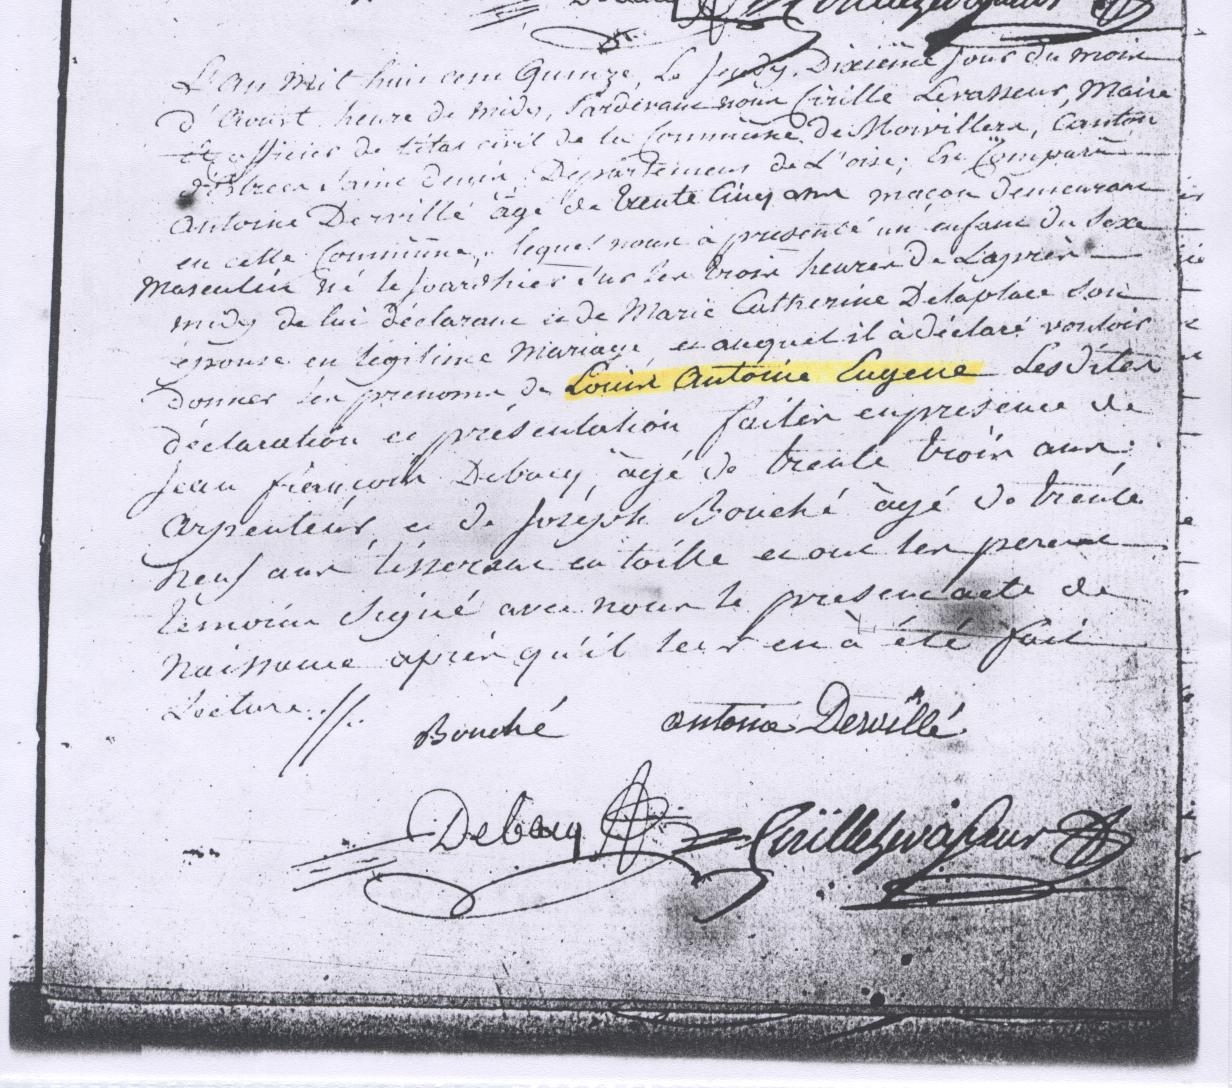 L'an mil huit cent Quinze, Le Jeudy Dixiême jour du mois
d'Aoust heure de midy, Pardevant nous Cirille Levasseur, Maire
et officier de l'état civil de la Commûne de Moivillers, Canton
d'Estrées Saint denis, Département de L'oise; Est Comparu
Antoine Dervillé âgé de trente Cinq ans maçon demeurant
en cette Commûne, lequel nous à présenté un enfant du Sexe
Masculin né le jourdhier sur les trois heures de L'après
midy de lui déclarant et de Marie Catherine Delaplace Son
épouse en légitime Mariage et auquel il à déclaré vouloir
donner les prenoms de Louis Antoine Eugene Lesdites
déclaration et présentation faites en presence de
Jean françois Debacq, âgé de trente trois ans
arpenteur, et de Joséph Bouché âgé de trente
neuf ans tisserant en toille et ont les pere et
temoins Signé avec nous le present acte de
Naissance après qu'il leur en à été fait
Lecture.//.
Bouché antoine Dervillé
Debacq CirilleLevasseur